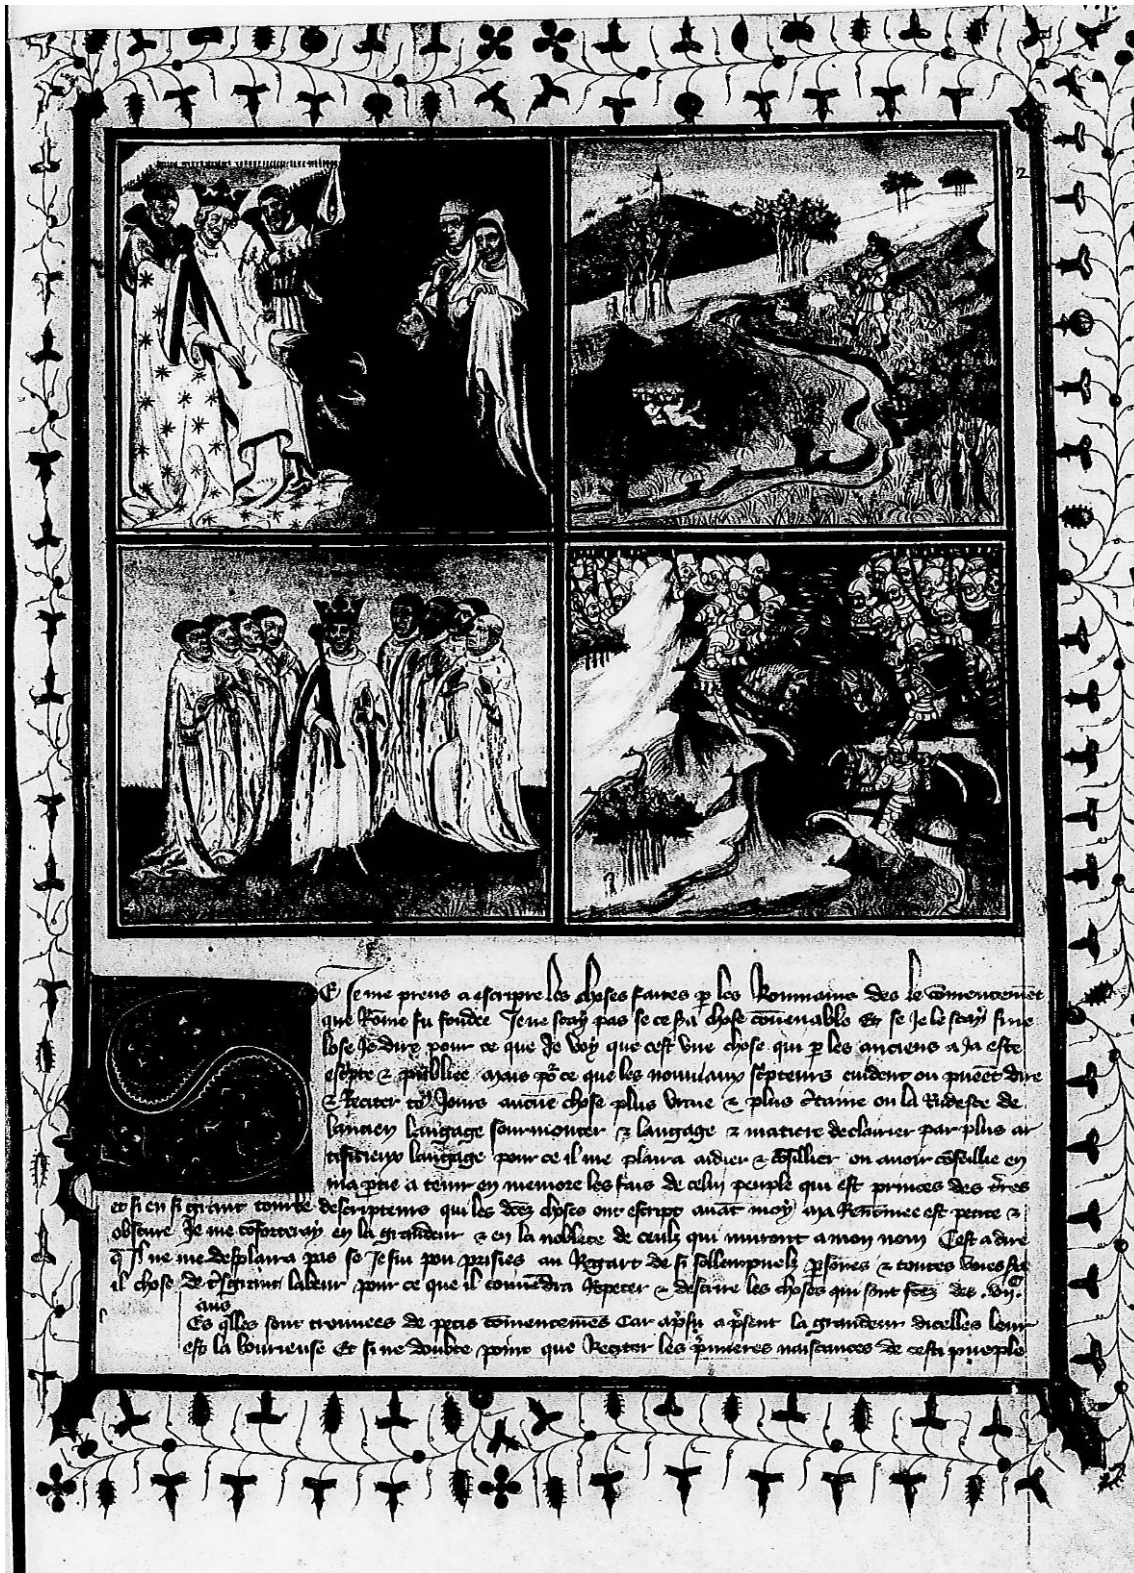 2
E Je me prens a escripre les choses faites ꝑ les Rommains des le cõmencemẽt
que Rome fu fondee Je ne scay pas se ce ß̃a chose cõuenable Et se Je le scay
lose Je dire pour ce que Je voy que cest vne chose qui ꝑ les anciens a Ja este
& publiee mais po² ce que les nouuiaux cuident ou dire
& Reciter Jours aucũe chose plus vraie & plus c̃taine ou la Rudesse de
lancien langage sourmonter & langage & matiere declairier par plus ar
tificieux langage pour ce il me plaira aidier & cõsillier ou auoir cõseillie en
ma ꝑtie a tenir en memoire les fais de celui peuple qui est princes des t̃res
et si en si grant tourbe descripteurs qui les choses ont escript auãt moy ma Renõmee est petite &
obscure Je me cõforteray en la grandeur & en la noblece de ceulx qui nuiront a mon nom Cest a dire
q̃ Il ne me desplaira pas se Je sui pou prisies au Rgart de si sollempnelz ꝑsõnes & toutes voies
il chose de grant labeur pour ce que il conuẽdra Repeter & descrire les choses qui sont des .vij.
ans
Es q̃lles sont trouuees de petis cõmencemẽs Car a p̃sent la grandeur dicelles leur
est la bourieuse Et si ne doubte point que Reciter les p̃mieres naiscances de cesti pueple